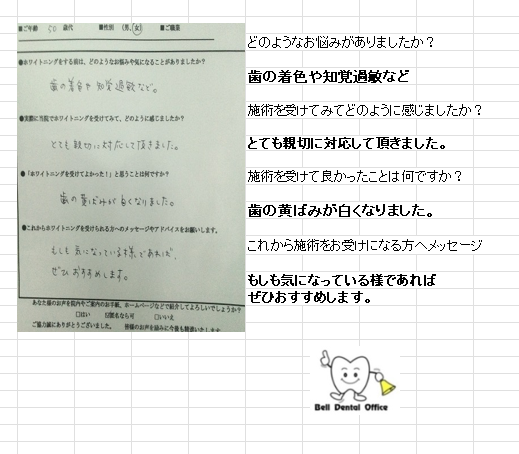 ■ご年齢 50 歳代 ■性別 (男、女) ■ご職業
●ホワイトニングをする前は、どのようなお悩みや気になることがありましたか?
歯の着色や知覚過敏など。
●実際に当院でホワイトニングを受けてみて、どのように感じましたか?
とても親切に対応して頂きました。
●「ホワイトニングを受けてよかった!」と思うことは何ですか?
歯の黄ばみが白くなりました。
●これからホワイトニングを受けられる方へのメッセージやアドバイスをお願いします。
もしも気になっている様であれば、
ぜひおすすめします。
あなた様のお声を院内やご案内のお手紙、ホームページなどで紹介してよろしいでしょうか?
□はい ☑匿名なら可 □いいえ
ご協力誠にありがとうございました。 皆様のお声を励みに今後も精進いたします
どのようなお悩みがありましたか?
歯の着色や知覚過敏など
施術を受けてみてどのように感じましたか?
とても親切に対応して頂きました。
施術を受けて良かったことは何ですか?
歯の黄ばみが白くなりました。
これから施術をお受けになる方へメッセージ
もしも気になっている様であれば
ぜひおすすめします。
Bell Dental Office